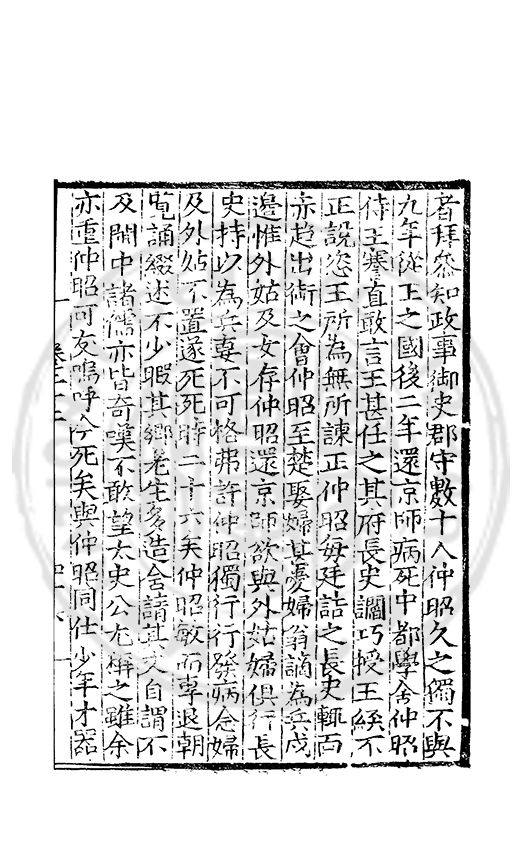 者拜叅知政事御史郡守數十人仲昭久之獨不與
九年從王之國後二年還京師病死中都學舍仲昭
侍王謇直敢言王甚任之其府長史讇巧授王綠不
正說恣王所為無所諫正仲昭每廷詰之長史輒面
赤趨出銜之會仲昭至楚娶婦其憂婦翁謫為兵戍
邊惟外姑及女存仲昭還京師欲與外姑婦俱行長
史持以為兵妻不可格弗許仲昭獨行行發病念婦
及外姑不置遂死死時二十六矣仲昭敏而專退朝
覽誦綴述不少暇其鄉老生多造舍請其文自謂不
及閩中諸儒亦皆奇嘆不敢望太史公尤稱之雖余
亦重仲昭可友嗚呼今死矣與仲昭同仕少年才器
卷二十二